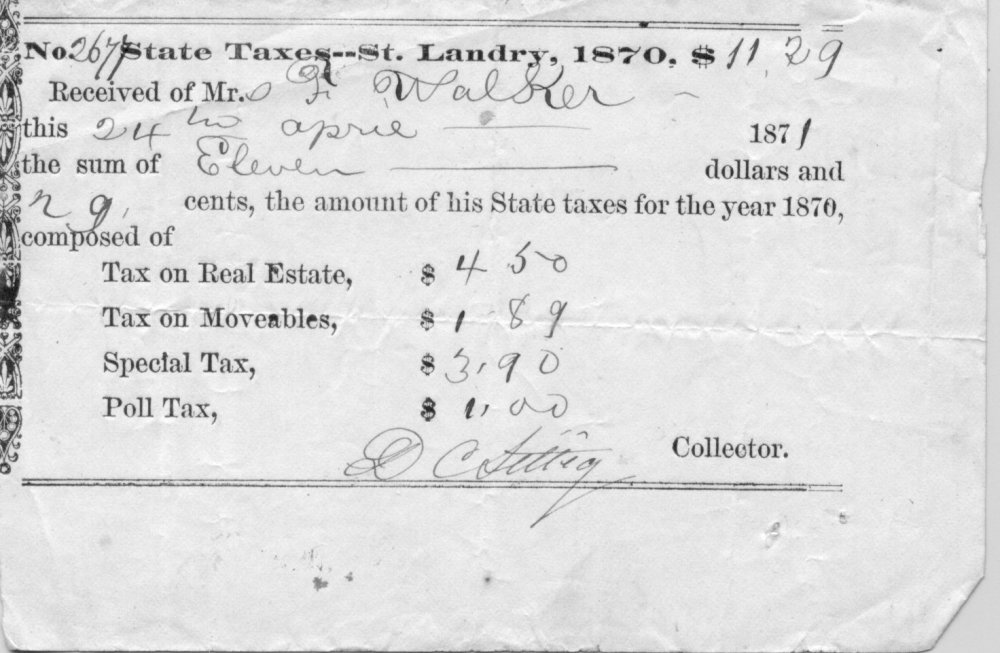 No. 2677 State Taxes--St. Landry, 1870. $ 11.29
Received of Mr. F. Walker
this 24th april 1871
the sum of Eleven dollars and
29, cents, the amount of his State taxes for the year 1870,
composed of
Tax on Real Estate, $ 4 50
Tax on Moveables, $ 1.89
Special Tax, $ 3.90
Poll Tax, $ 1.00
D C Sittig Collector.